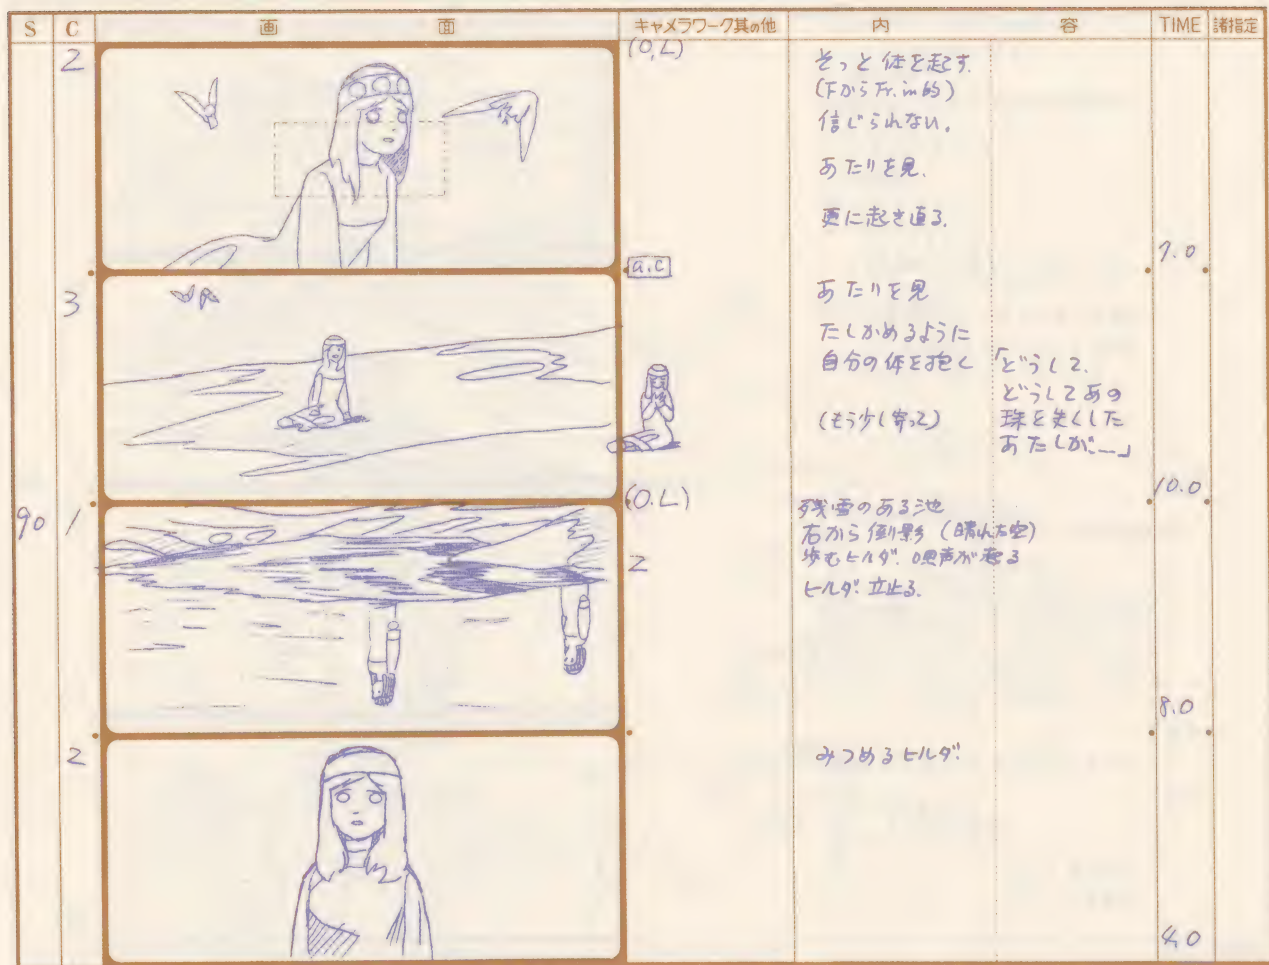 S C 画面 キャメラワーク其の他 内容 TIME 諸指定
2
(O,L)
そっと体を起す.
(FからFr.in的)
信じられない.
あたりを見.
更に起き直る.
7.0
3
a.c
あたりを見
たしかめるように
自分の体を抱く
(もう少し寄って)
「どうして、
どうしてあの
珠を失くした
あたしが――」
10.0
90
1
(O.L)
2
残雪のある池
右から倒影(晴れた空)
歩むヒルダ.
ヒルダ.立止る.
8.0
2
みつめるヒルダ.
4.0